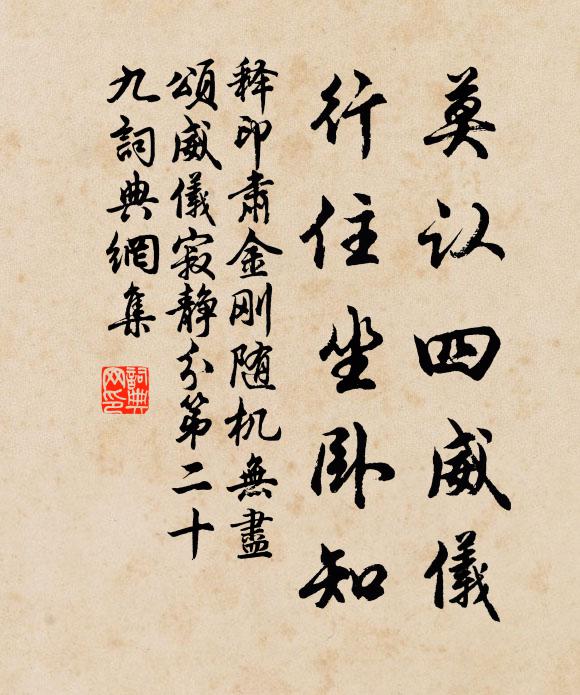 莫认四威儀
行住坐卧知
释印肃金刚随机無盡
頌威儀寂静分第二十
九詞典網集
詞典
网印